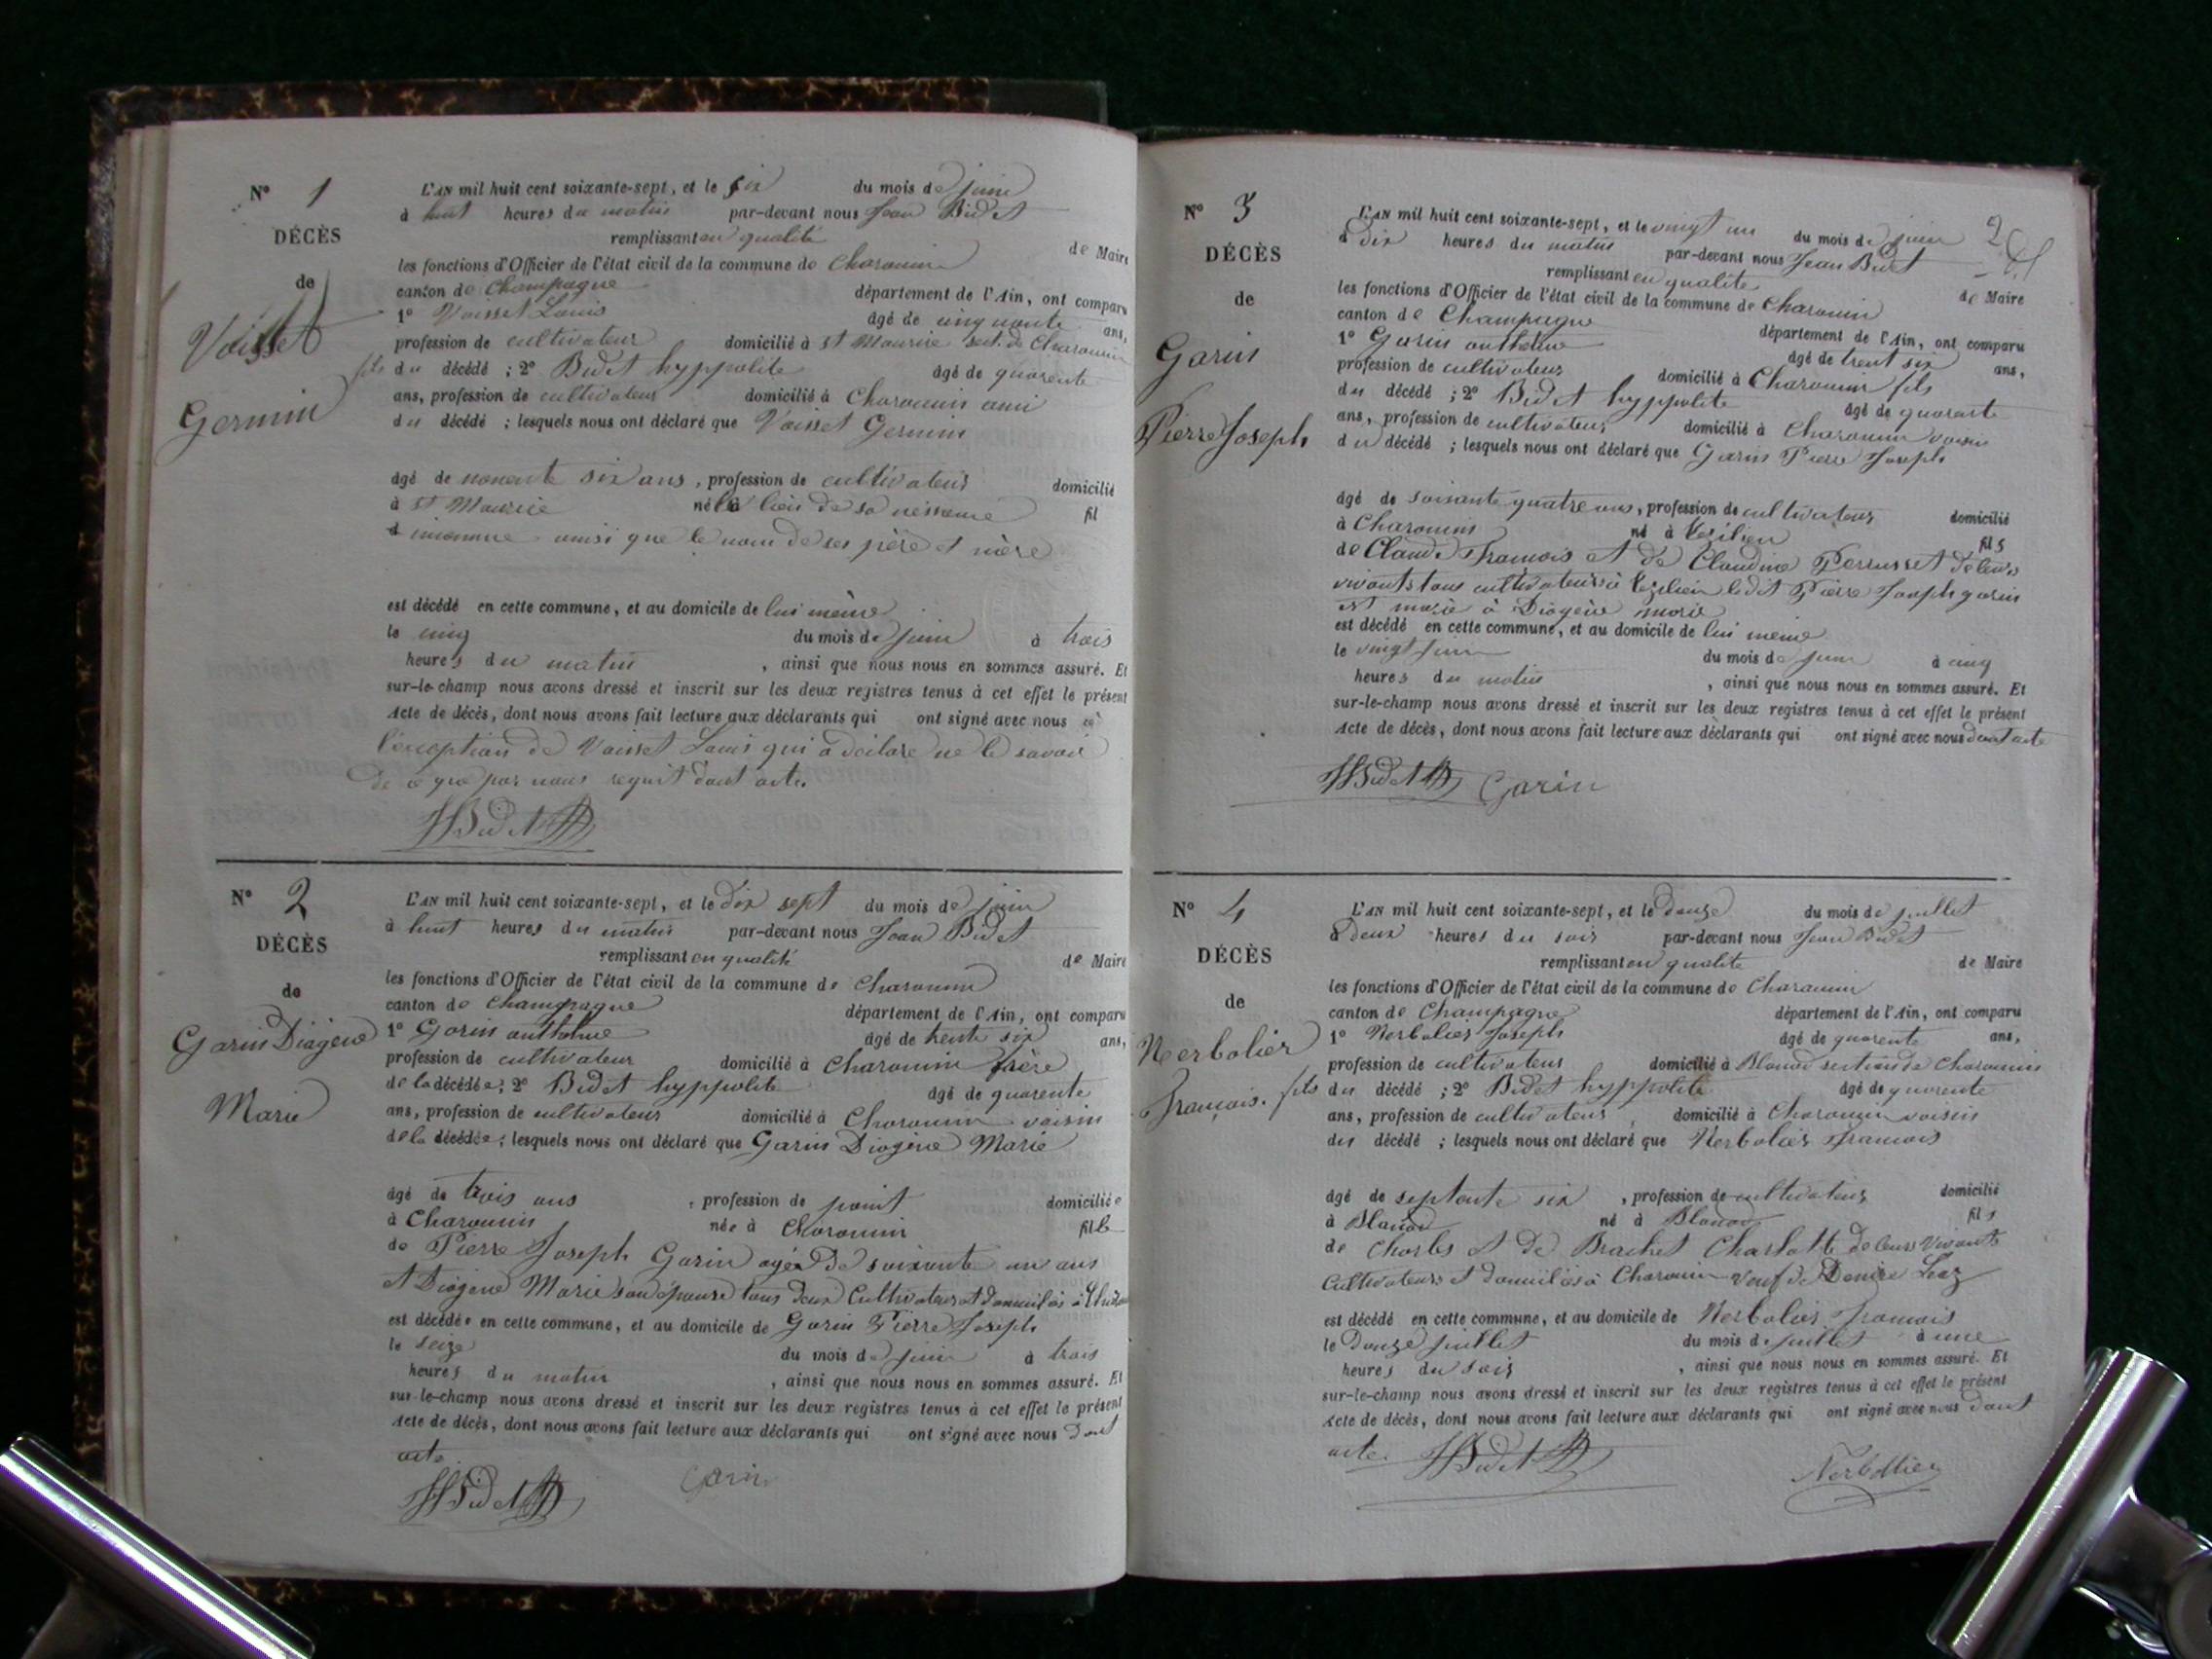 N° 1
DÉCÈS
de
Voisset
Germin
L'AN mil huit cent soixante-sept, et le six du mois de juin
à huit heures du matin par-devant nous Jean Bidet
remplissant en qualité de Maire
les fonctions d'Officier de l'état civil de la commune de Charancin
canton de Champagne département de l'Ain, ont comparu
1° Voisset Louis âgé de cinquante ans,
profession de cultivateur domicilié à St Maurice sect. de Charancin
fils du décédé ; 2° Bidet hyppolite âgé de quarente
ans, profession de cultivateur domicilié à Charancin ami
du décédé ; lesquels nous ont déclaré que Voisset Germin
âgé de nonente six ans, profession de cultivateur domicilié
à St Maurice né le lieu de sa nessence fil
d inconnue ainsi que le nom de ses père et mère
est décédé en cette commune, et au domicile de lui même
le cinq du mois de juin à trois
heures du matin , ainsi que nous nous en sommes assuré. Et
sur-le-champ nous avons dressé et inscrit sur les deux registres tenus à cet effet le présent
Acte de décès, dont nous avons fait lecture aux déclarants qui ont signé avec nous
l'exception de Voisset Louis qui a déclare ne le savoir
de ce que par nous requit dont acte.
HBidet
N° 2
DÉCÈS
de
Garin Diogène
Marie
L'AN mil huit cent soixante-sept, et le dix sept du mois de juin
à huit heures du matin par-devant nous Jean Bidet
remplissant en qualité de Maire
les fonctions d'Officier de l'état civil de la commune de Charancin
canton de Champagne département de l'Ain, ont comparu
1° Garin anthelme âgé de trente six ans,
profession de cultivateur domicilié à Charancin frère
de la décédée ; 2° Bidet hyppolite âgé de quarente
ans, profession de cultivateur domicilié à Charancin voisin
de la décédée ; lesquels nous ont déclaré que Garin Diogène Marie
âgé de trois ans , profession de point domiciliée
à Charancin née à Charancin fille
de Pierre Joseph Garin agé de soixante un ans
et Diogène Marie son épouse tous deux Cultivateurs et domiciliés à
est décédée en cette commune, et au domicile de Garin Pierre Joseph
le seize du mois de juin à trois
heures du matin , ainsi que nous nous en sommes assuré. Et
sur-le-champ nous avons dressé et inscrit sur les deux registres tenus à cet effet le présent
Acte de décès, dont nous avons fait lecture aux déclarants qui ont signé avec nous dont
acte
HBidet Garin
2
N° 3
DÉCÈS
de
Garin
Pierre Joseph
L'AN mil huit cent soixante-sept, et le vingt un du mois de juin
à dix heures du matin par-devant nous Jean Bidet
remplissant en qualité de Maire
les fonctions d'Officier de l'état civil de la commune de Charancin
canton de Champagne département de l'Ain, ont comparu
1° Garin anthelme âgé de trent six ans,
profession de cultivateur domicilié à Charancin fils
du décédé ; 2° Bidet hyppolite âgé de quarante
ans, profession de cultivateur domicilié à Charancin voisin
du décédé ; lesquels nous ont déclaré que Garin Pierre Joseph
âgé de soixante quatre ans, profession de cultivateur domicilié
à Charancin né à fils
de Claude Francois et de Claudine Perrusset de leurs
vivants tous cultivateurs à ledit Pierre Joseph garin
est marié à Diogène marie
est décédé en cette commune, et au domicile de lui même
le vingt juin du mois de juin à cinq
heures du matin , ainsi que nous nous en sommes assuré. Et
sur-le-champ nous avons dressé et inscrit sur les deux registres tenus à cet effet le présent
Acte de décès, dont nous avons fait lecture aux déclarants qui ont signé avec nous dont acte
HBidet Garin
N° 4
DÉCÈS
de
Nerbolier
François.
L'AN mil huit cent soixante-sept, et le douze du mois de juillet
à deux heures du soir par-devant nous Jean Bidet
remplissant en qualite de Maire
les fonctions d'Officier de l'état civil de la commune de Charancin
canton de Champagne département de l'Ain, ont comparu
1° Nerbolier Joseph âgé de quarente ans,
profession de cultivateur domicilié à Blanad section de Charancin
fils du décédé ; 2° Bidet hyppolite âgé de quarente
ans, profession de cultivateur, domicilié à Charancin voisin
du décédé ; lesquels nous ont déclaré que Nerbolier Francois
âgé de septente six , profession de cultivateur domicilié
à Blanad né à Blanad fils
de Charles et de Brachet Charlotte de leurs vivants
Cultivateurs et domiciliés à Charancin veuf de Denise
est décédé en cette commune, et au domicile de Nerbolier Francois
le Douze juillet du mois de juillet à une
heures du soir , ainsi que nous nous en sommes assuré. Et
sur-le-champ nous avons dressé et inscrit sur les deux registres tenus à cet effet le présent
Acte de décès, dont nous avons fait lecture aux déclarants qui ont signé avec nous dont
acte. HBidet Nerbollier